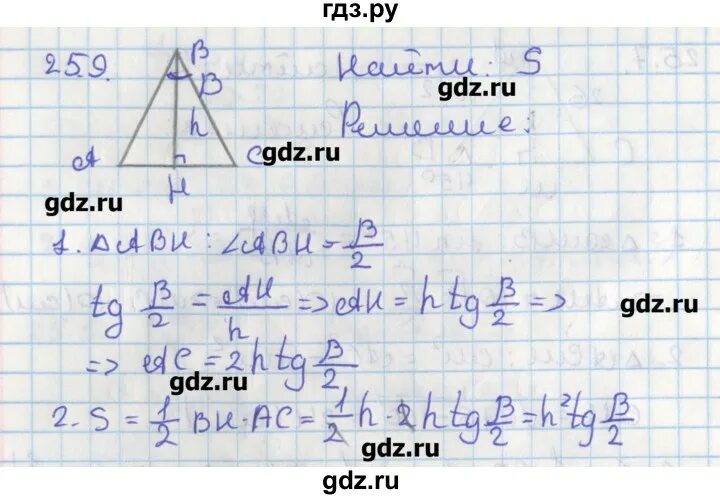 гдз.ру
259.
B
β
h
A
C
H
Найти: S
gdz.ru
Решение:
gdz.ru
gdz.ru
1. △ABH: ∠ABH = β/2
tg β/2 = AH/h => AH = h tg β/2 =>
gdz.ru
=> AC = 2h tg β/2
gdz.ru
2. S = 1/2 BH·AC = 1/2 h · 2 h tg β/2 = h² tg β/2
gdz.ru
gdz.ru